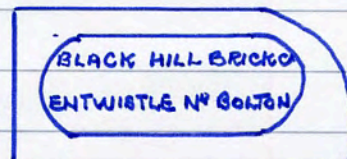 BLACK HILL BRICKCO
ENTWISTLE Nr BOLTON